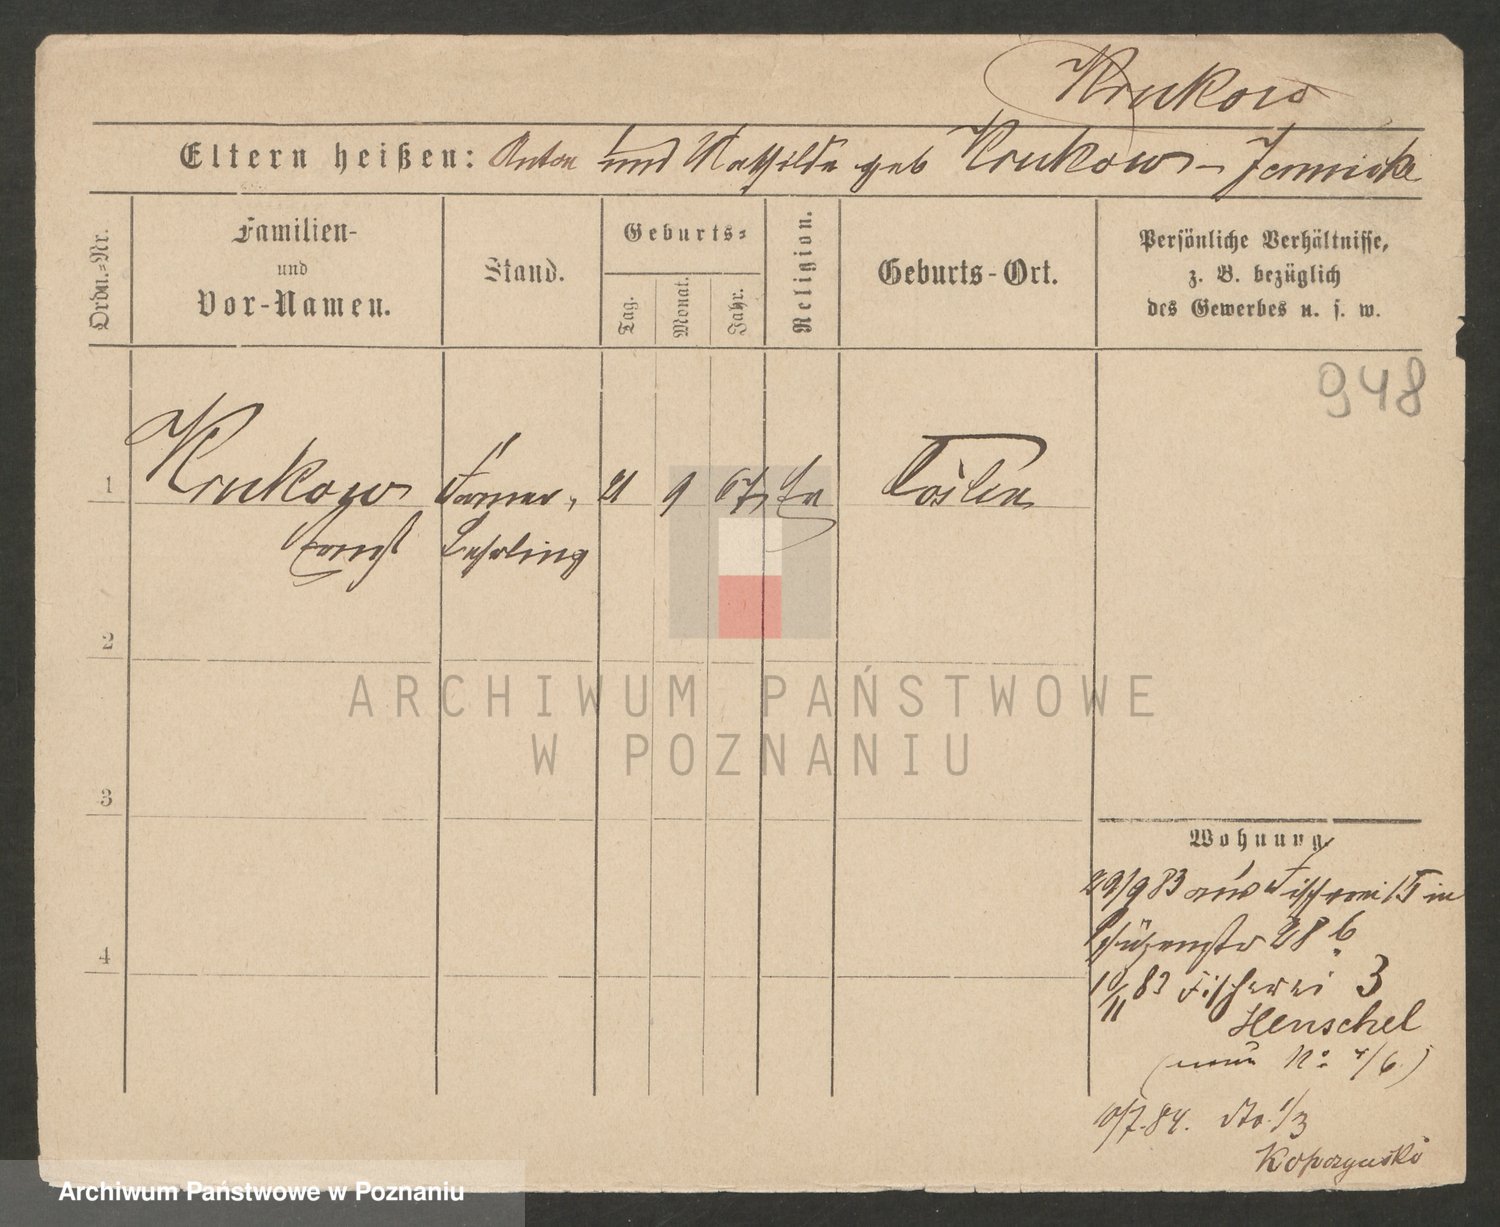 Krukow
Eltern heißen: Anton und Mathilde geb Krukow - Jannicke
Ordn.=Nr.
Familien-
und
Vor-Namen.
Stand.
Geburts=
Tag.
Monat.
Jahr.
Religion.
Geburts-Ort.
Persönliche Verhältnisse,
z. B. bezüglich
des Gewerbes u. s. w.
948
1
Krukow
Ernst
Former,
Lehrling
21
9
67
Ev
Cöslin
2
3
4
Wohnung
29/9 83 aus Fischerei 15 in
Schützenstr 28 b
10/11 83 Fischerei 3
Henschel
(neue No 4/6.)
10/7.84. dto. 1/3
Kopczynski
ARCHIWUM PAŃSTWOWE
W POZNANIU
Archiwum Państwowe w Poznaniu